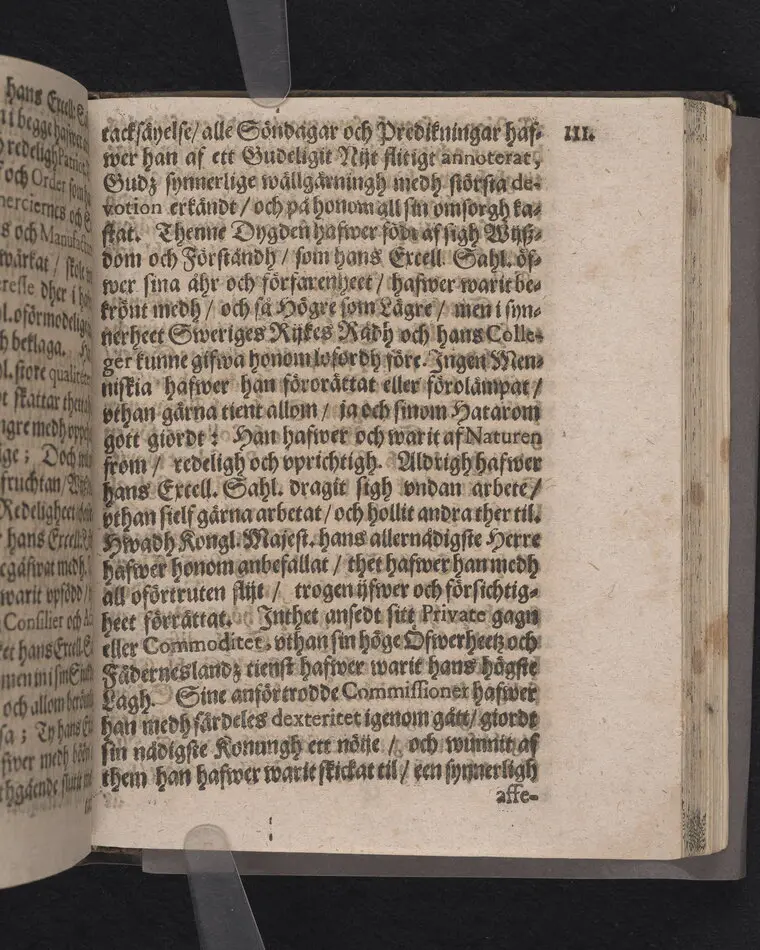 hans Excell. S
i begge hafwer
redeligh Patriot
och Order som
merciernes och
s och Manufactu
wärkat / skole
resse dher i
l. oförmodelig
h beklaga.
hl. store qualit
skattar thetta
ngre medh
ge ; Doch
fruchtan /
Redeligheet
hans Excell.
medh
warit vpfödd /
Consilier och
et hans Excell.
men in i sin
och allom
sa ; Ty hans
fwer medh
thgående
tacksäyelse / alle Söndagar och Predikningar haf-
wer han af ett Gudeligit Nijt flitigt annoterat,
Gudz synnerlige wällgärningh medh största de-
votion erkändt / och på honom all sin omsorgh ka-
stat. Thenne Dygden hafwer födt af sigh Wijß-
dom och Förståndh / som hans Excell. Sahl. öf-
wer sina åhr och förfarenheet / hafwer warit be-
krönt medh / och så Högre som Lägre / men i syn-
nerheet Sweriges Rijkes Rådh och hans Colle-
ger kunne gifwa honom lofordh före. Ingen Men-
niskia hafwer han förorättat eller förolämpat /
vthan gärna tient allom / ja och sinom Hatarom
gott giordt : Han hafwer och warit af Naturen
from / redeligh och vprichtigh. Aldrigh hafwer
hans Excell. Sahl. dragit sigh vndan arbete /
vthan sielf gärna arbetat / och hollit andra ther til.
Hwadh Kongl. Majest. hans allernådigste Herre
hafwer honom anbefallat / thet hafwer han medh
all oförtruten flijt / trogen ijfwer och försichtig-
heet förrättat. Inthet ansedt sitt Private gagn
eller Commoditet, vthan sin höge Öfwerheetz och
Fäderneslandz tienst hafwer warit hans högste
Lagh. Sine anförtrodde Commissioner hafwer
han medh särdeles dexteritet igenom gått / giordt
sin nådigste Konungh ett nöije / och wunnit af
them han hafwer warit skickat til / een synnerligh
affe-
III.